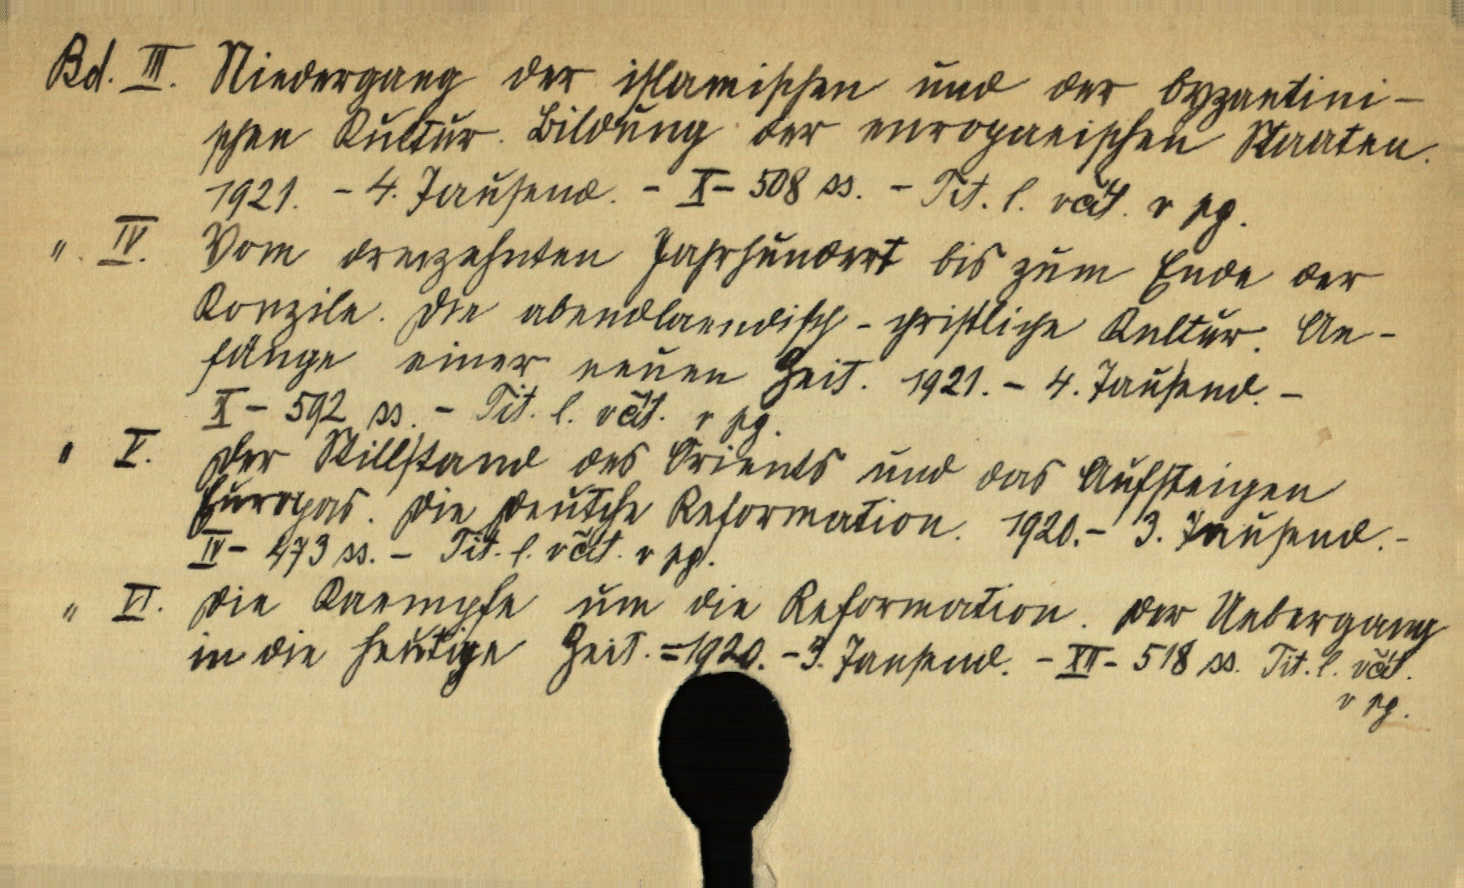 Bd. III. Niedergang der islamischen und der byzantini-
schen Kultur. Bildung der europaeischen Staaten.
1921. - 4. Tausend. - X - 508 ss. - Tit. l. vät. v pg.
". IV. Vom dreizehnten Jahrhundert bis zum Ende der
Konzile. Die abendlaendisch-christliche Kultur. An-
fänge einer neuen Zeit. 1921. - 4. Tausend. -
X - 592 ss. - Tit. l. vät. v pg.
" V. Der Stillstand des Orients und das Aufsteigen
Europas. Die Deutsche Reformation. 1920. - 3. Tausend. -
IV - 473 ss. - Tit. l. vät. v pg.
" VI. Die Kaempfe um die Reformation. Der Uebergang
in die heutige Zeit. = 1920. - 3. Tausend. - XII - 518 ss. Tit. l. vät.
v pg.